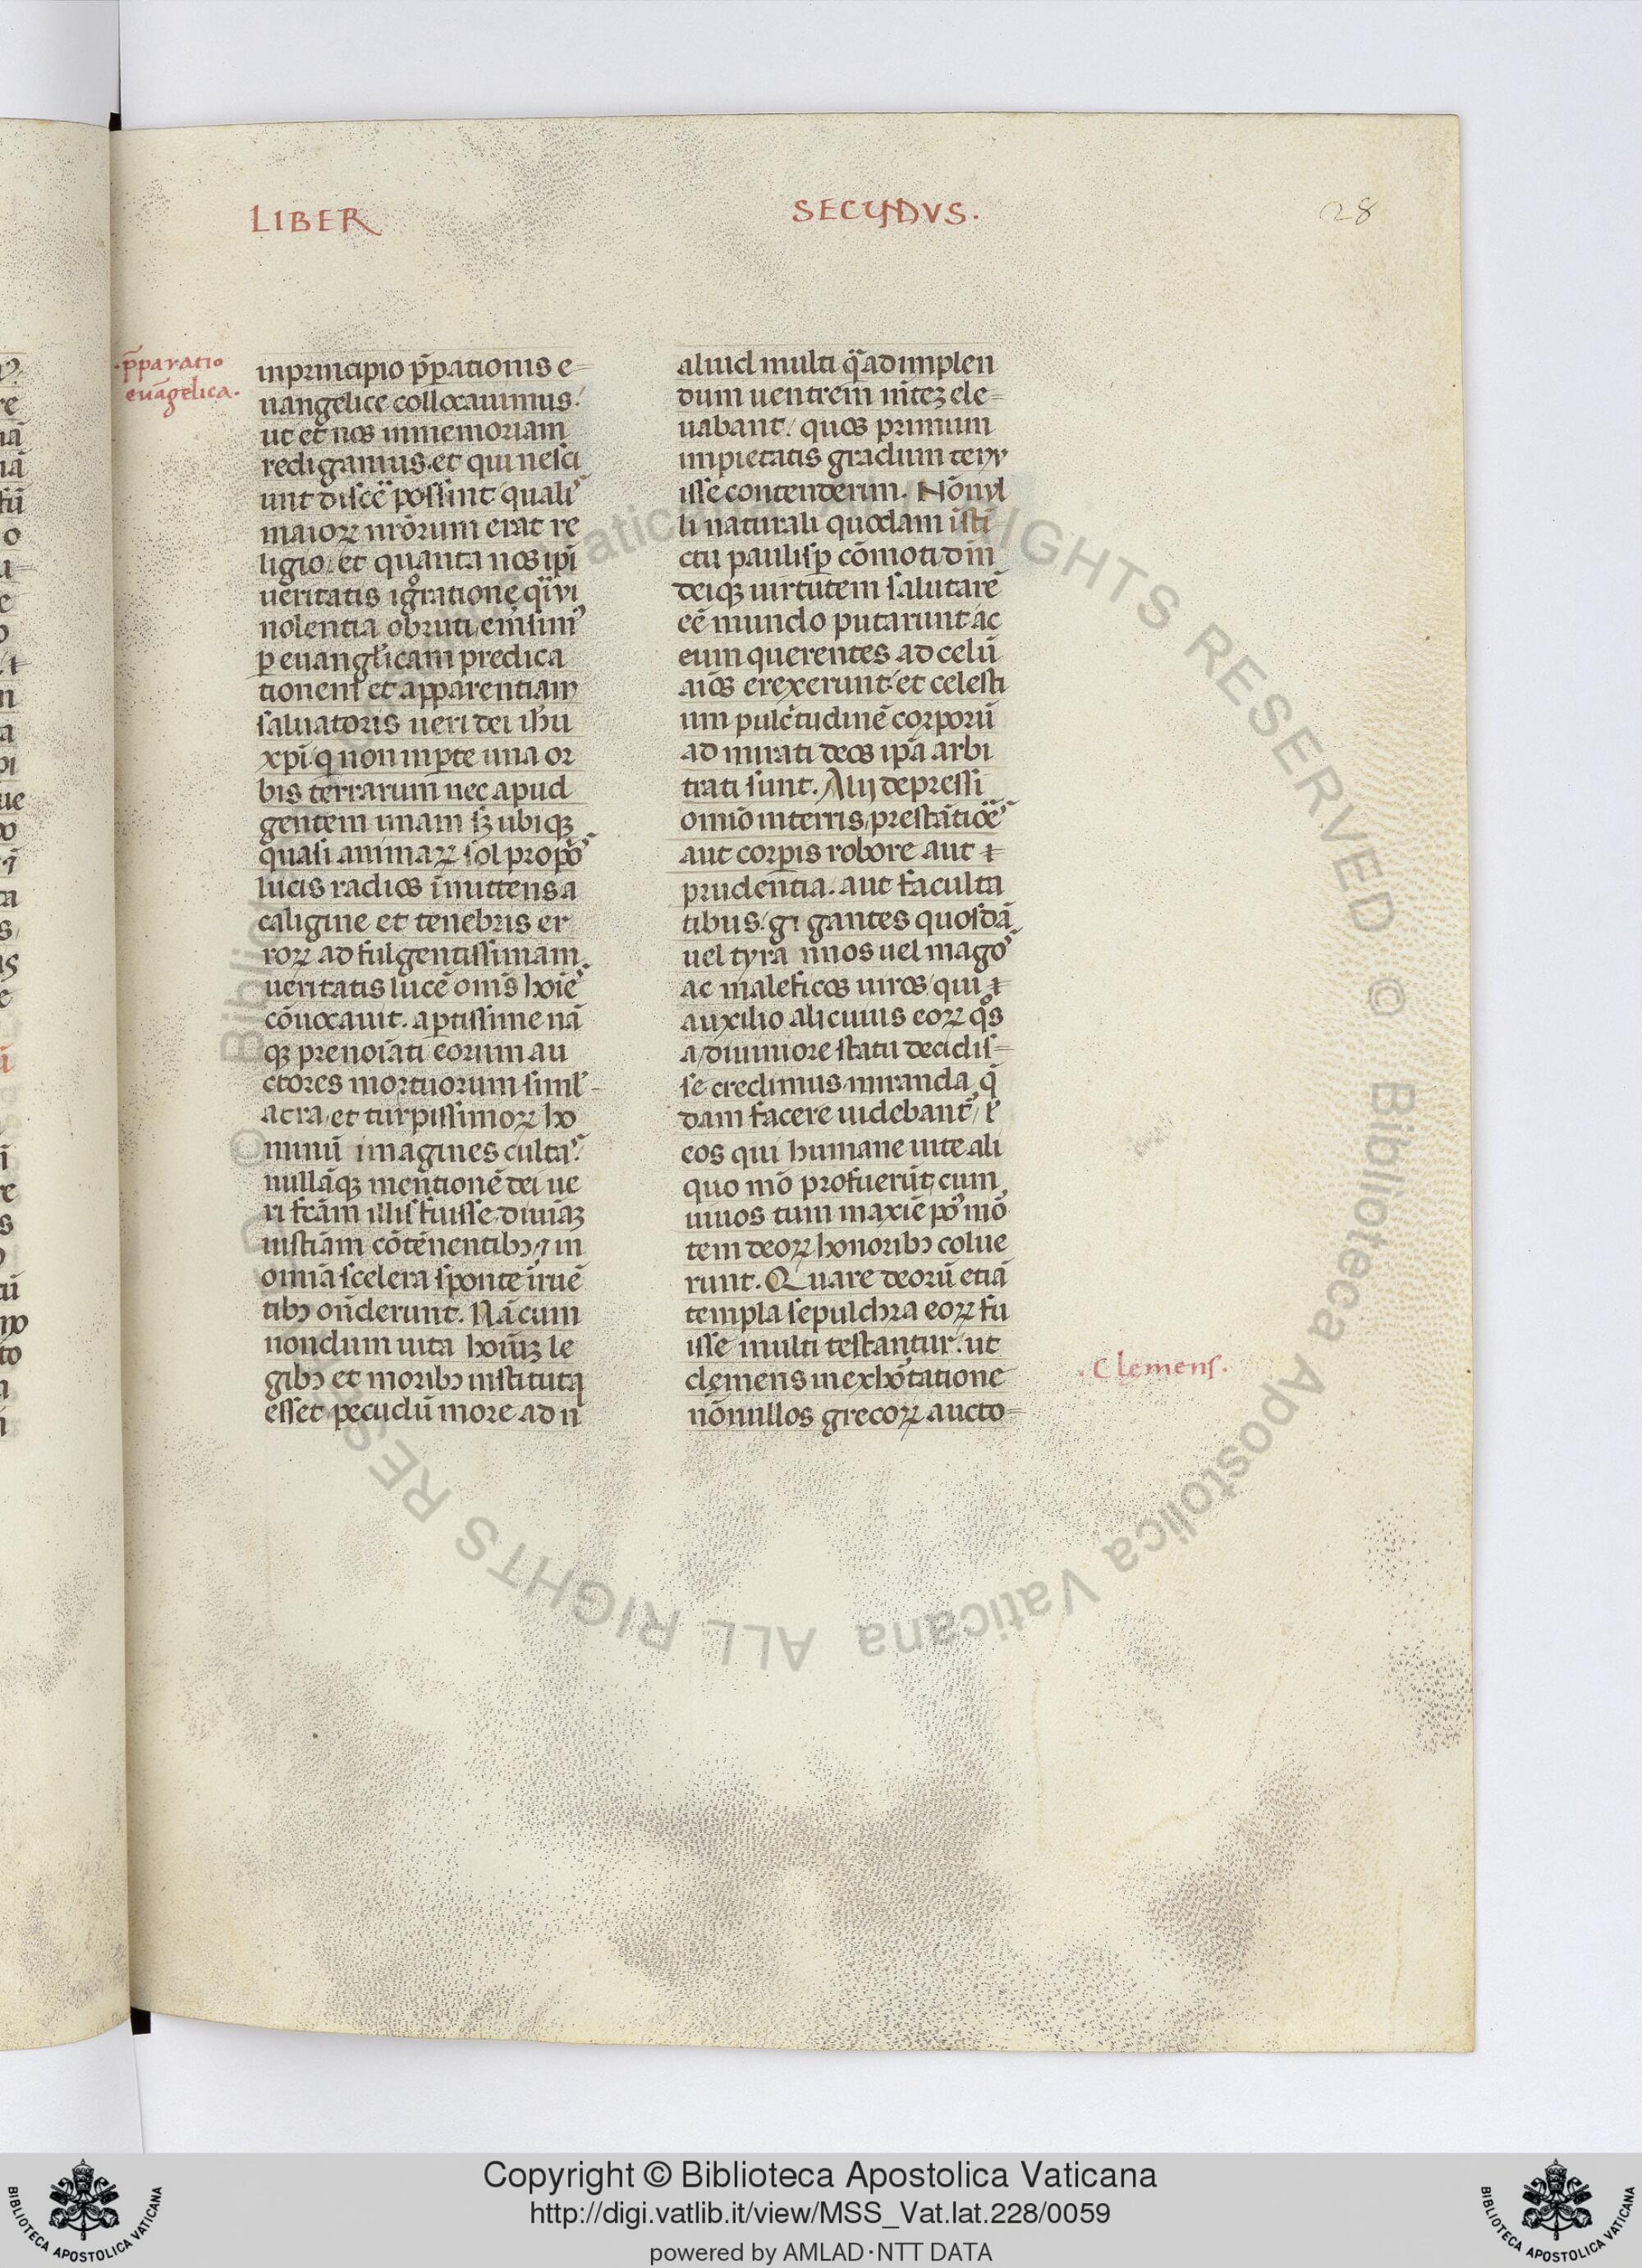 LIBER
SECUNDVS.
28
p̄paratio
euāgelica.
in principio p̄pationis e=
uangelice collocauimus:
ut et nos in memoriam
redigamus. et qui nesci
unt discē possint quali᷑
maioꝝ nr̄orum erat re
ligio. et quanta nos ip̄i
ueritatis igratione q̈ui
nolentia obruti emsim᷒
ꝑ euangl̄icam predica
tionem et apparentiam
saluatoris ueri dei ih̄u
xp̄i. q non in ꝑte una or
bis terrarum nec apud
gentem unam sꝫ ubiqꝫ
quasi animaꝝ sol propo᷑
lucis radios īmittens a
caligine et tenebris er
roꝝ ad fulgentissimam
ueritatis lucē om̄s hoīe᷑
cōuocauit. aptissime nā
qꝫ prenoīati eorum au
ctores mortuorum siml̄
acra. et turpissimoꝝ ho
minū imagines culta᷑.
nullāqꝫ mentionē dei ue
ri fcām illis fuisse. diuīaꝫ
iustiām cōtēnentibꝫ. ⁊ in
omīa scelera sponte īruē
tibꝫ on̄derunt. Nā cum
nondum uita hoīuꝫ le
gibꝫ et moribꝫ instituta
esset. pecudū more ad n
aliud multi q̈ ad implen
dum uentrem mētez ele=
uabant. quos primum
impietatis gradum tenu
isse contenderim. Nōnul
li naturali quodam īsti
ctu paulisꝑ cōmoti dm̄
deiqꝫ uirtutem salutarē
eē mundo putarunt ac
eum querentes ad celū
aīos erexerunt. et celesti
um pulc̄tudinē corporū
admirati deos ip̄a arbi
trati sunt. Alij depressi
omīo in terris, prestātiōe᷑
aut corꝑis robore aut ⁊
prudentia. aut faculta
tibus. gigantes quosdā
uel tyrannos uel mago᷑
ac maleficos uiros. qui ⁊
auxilio alicuius eoꝝ qͦs
a diuiniore statu decidis=
se credimus. miranda q̄
dam facere uidebant᷑.
eos qui humane uite ali
quo mō profuerūt. cum
uiuos tum maxīe po᷑ mō
tem deoꝝ honoribꝫ colue
runt. Quare deorū etiā
templa sepulchra eoꝝ fu
isse multi testantur. ut
clemens in exhōtatione
nōnullos grecoꝝ aucto=
. Clemens.
Copyright © Biblioteca Apostolica Vaticana
http://digi.vatlib.it/view/MSS_Vat.lat.228/0059
powered by AMLAD·NTT DATA
BIBLIOTECA APOSTOLICA VATICANA
BIBLIOTECA APOSTOLICA VATICANA